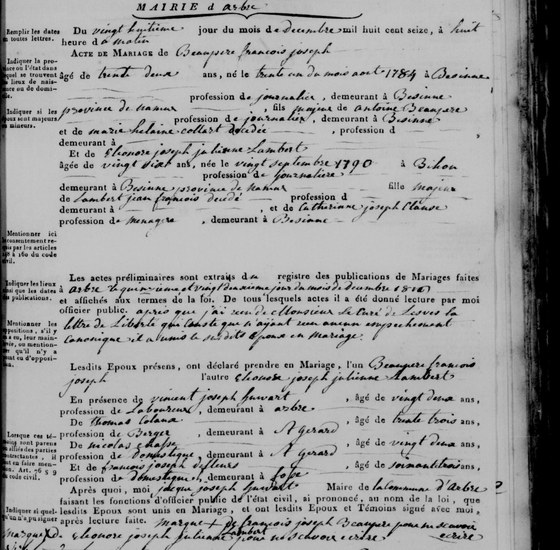 MAIRIE d'arbre
Remplir les dates
en toutes lettres.
Du vingt huitieme jour du mois de decembre mil huit cent seize, à huit
heure d matin
ACTE DE MARIAGE de Beaupere françois joseph
âgé de trente deux ans, né le trente un du mois aout 1784 à Besinne
Indiquer la pro-
ou l'état dans
quel se trouvent
lieux de nais-
sance ou de domi-
cile.
profession de journalier, demeurant à Besinne
province de namur, fils majeur de antoine Beaupere
Indiquer si les
sont majeurs
mineurs.
profession de journalier, demeurant à Besinne
et de marie helaine collart decedée, profession d
demeurant à
Et de Eleonore joseph julienne Lambert
âgée de vingt sixt ans, née le vingt septembre 1790 à Bihon
profession de journaliere
demeurant à Besinne province de namur fille majeur
de Lambert jean françois decedé profession d
demeurant à et de Catherinne joseph Clause
profession de menagre, demeurant à Besinne
Mentionner ici
consentement re-
par les articles
à 160 du code
civil.
Les actes préliminaires sont extraits du registre des publications de Mariages faites
Indiquer les lieux
que les dates
publications.
à arbre le quinzieme et vingt deuxieme jour du mois de decembre 1816
et affichés aux termes de la loi. De tous lesquels actes il a été donné lecture par moi
officier public. après que j'ai de Monsieur le Curé de Lesves la
Mentionner les
oppositions, s'il y
a eu, leur main-
ou mention-
qu'il n'y a
ou d'opposi-
tion.
lettre de Liberté que conste que n'ayant aucun empechement
Canonique il a les dits Epoux en mariage.
Lesdits Epoux présens, ont déclaré prendre en Mariage, l'un Beaupere françois
joseph l'autre Eleonore joseph julienne Lambert
En présence de vincent joseph huvart, âgé de vingt deux ans,
profession de Laboureur, demeurant à arbre
De thomas, âgé de trente trois ans,
profession de Berger, demeurant à St gerard
Lorsque ces té-
moins sont parens
affiliés des parties
il
faut en faire men-
tion. Art.
code civil.
De nicolas, âgé de vingt deux ans,
profession de domestique, demeurant à St gerard
Et de françois joseph, âgé de soixante trois ans,
profession de domestique, demeurant à fosse
Après quoi, moi jaque joseph huvart Maire de la commune d'Arbre
faisant les fonctions d'officier public de l'état civil, ai prononcé, au nom de la loi, que
lesdits Epoux sont unis en Mariage, et ont lesdits Epoux et Témoins signé avec moi,
Indiquer si quel-
qu'un n'a pu signer
après lecture faite. marque + de françois joseph Beaupere pour ne scavoir
ecrire
marque de Eleonore joseph julienne Lambert pour ne scavoir ecrire